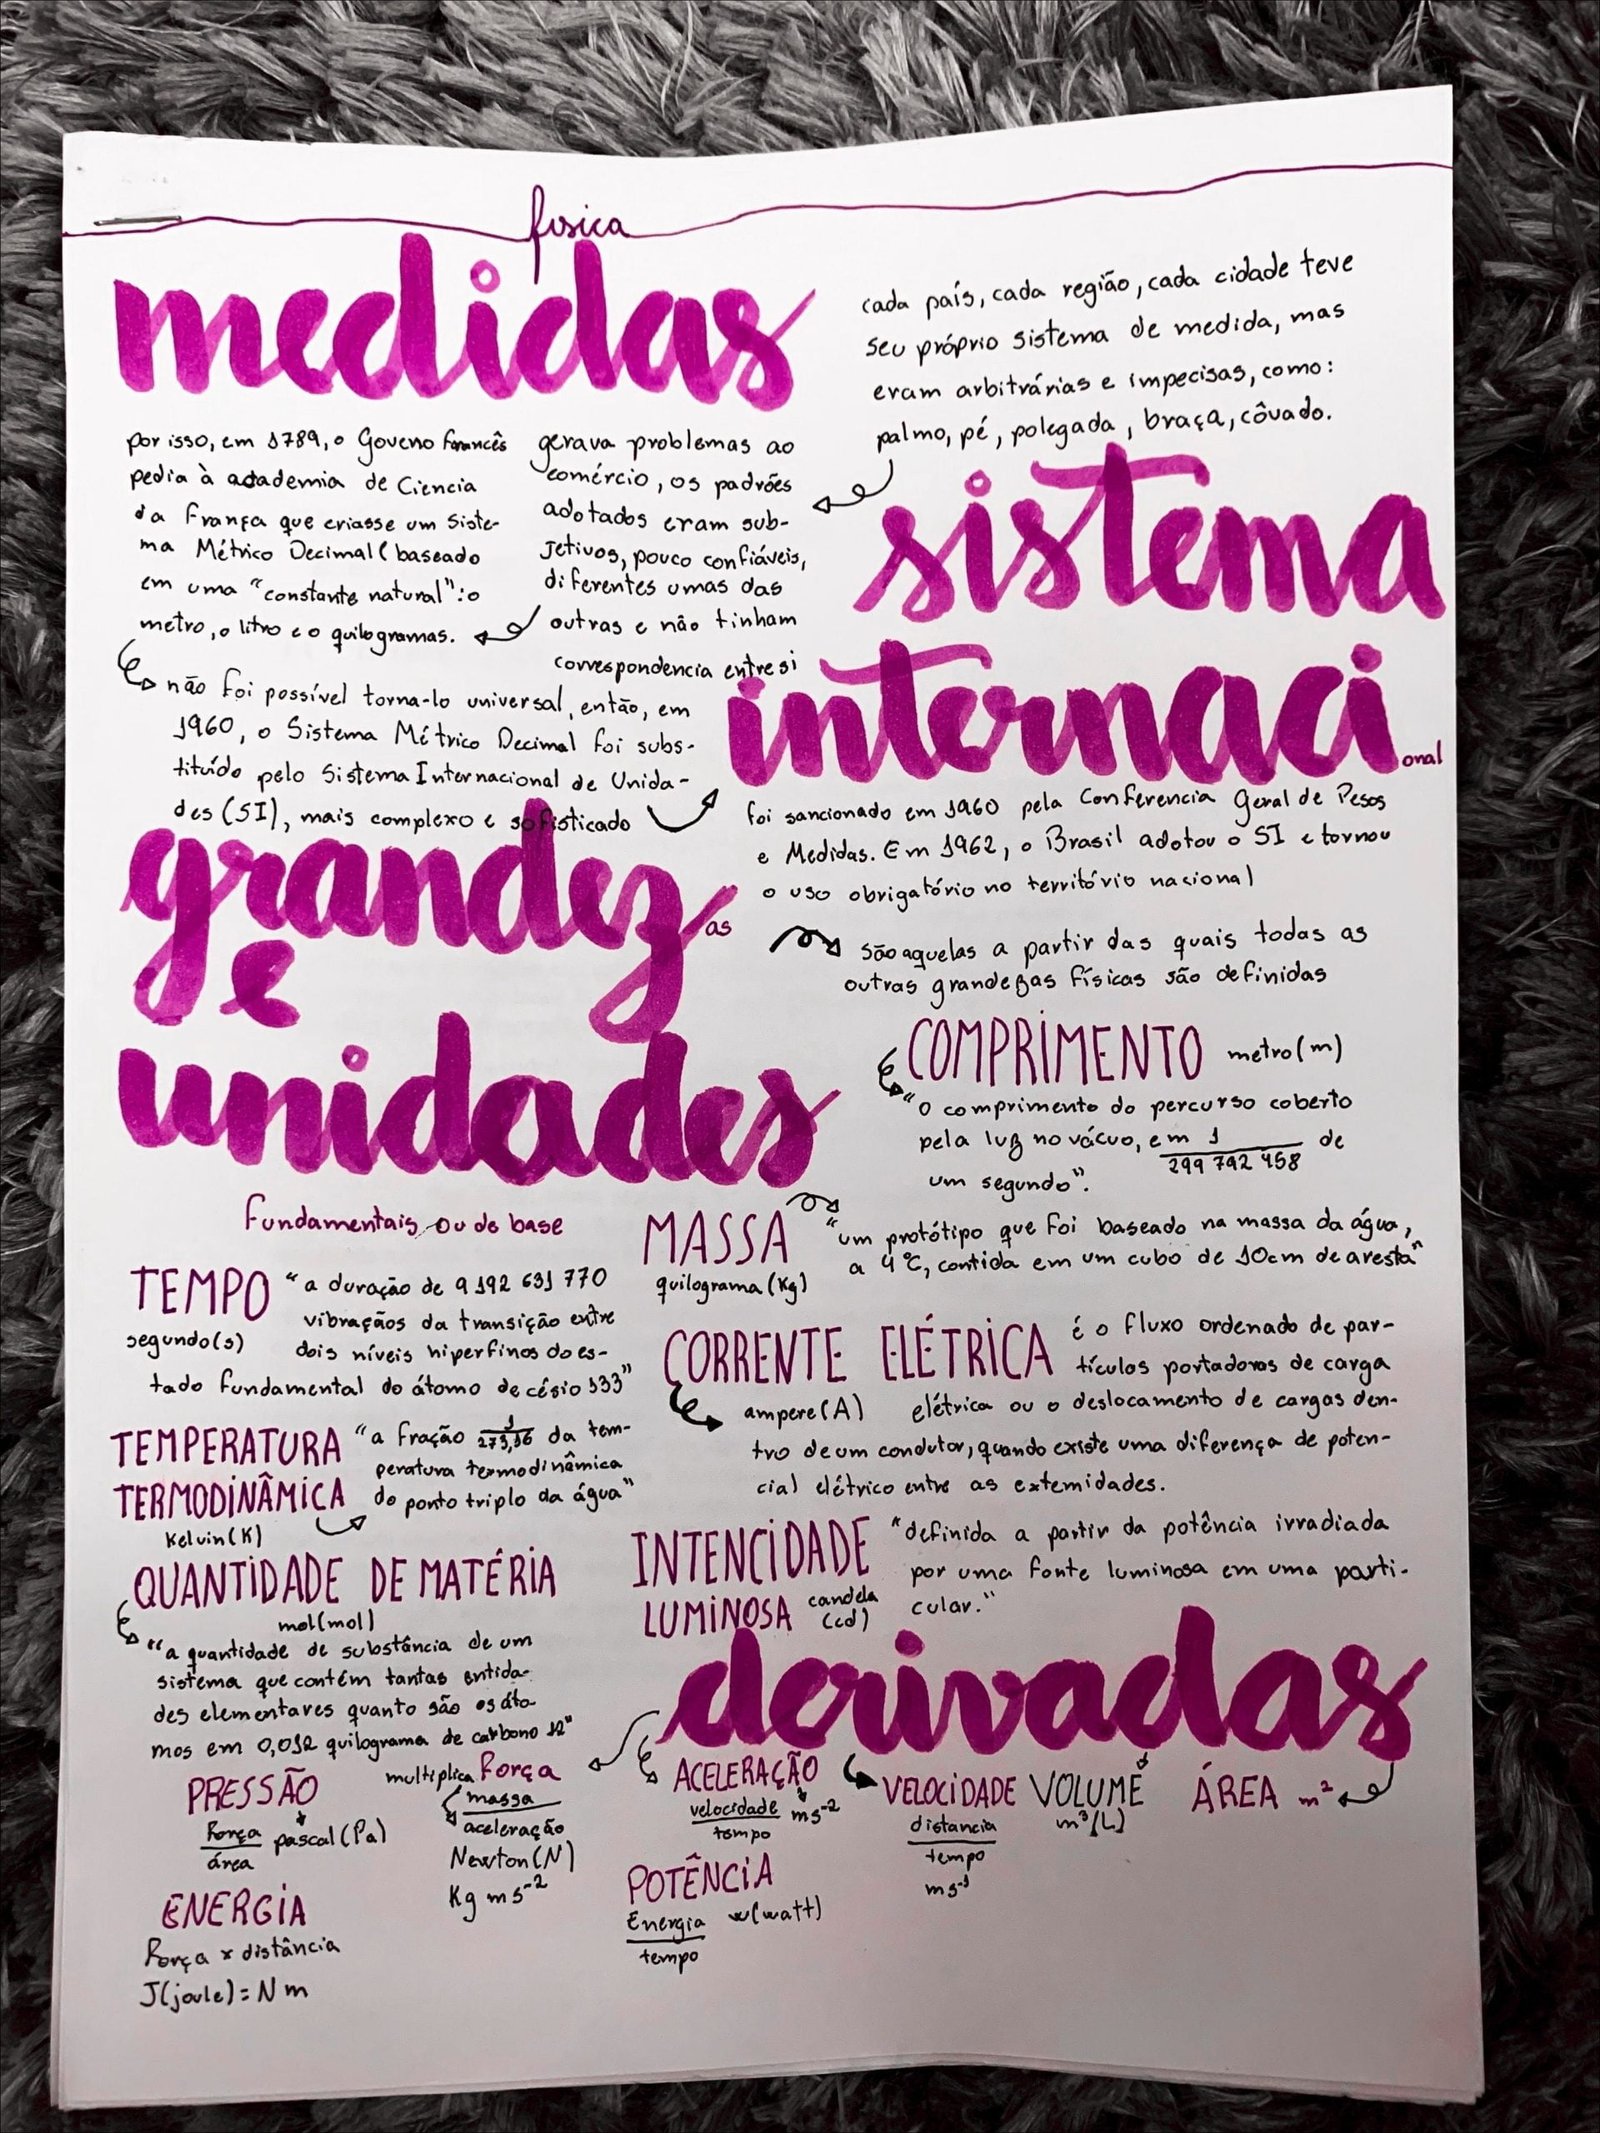 física
medidas
cada país, cada região, cada cidade teve
seu próprio sistema de medida, mas
eram arbitrárias e impecisas, como:
palmo, pé, polegada, braça, côvado.
gerava problemas ao
comércio, os padrões
adotados eram sub-
jetivos, pouco confiáveis,
diferentes umas das
outras e não tinham
correspondencia entre si
por isso, em 1789, o Goveno francês
pedia à academia de Ciencia
da França que criasse um siste-
ma Métrico Decimal (baseado
em uma "constante natural": o
metro, o litro e o quilogramas.
não foi possível torna-lo universal, então, em
1960, o Sistema Métrico Decimal foi subs-
tituído pelo Sistema Internacional de Unida-
des (SI), mais complexo e sofisticado
sistema
internacional
foi sancionado em 1960 pela Conferencia Geral de Pesos
e Medidas. Em 1962, o Brasil adotou o SI e tornou
o uso obrigatório no território nacional
grandezas
e
unidades
fundamentais ou de base
são aquelas a partir das quais todas as
outras grandezas físicas são definidas
COMPRIMENTO metro (m)
"o comprimento do percurso coberto
pela luz no vácuo, em 1/299 792 458 de
um segundo".
MASSA
quilograma (Kg)
"um protótipo que foi baseado na massa da água,
a 4°C, contida em um cubo de 10cm de aresta"
TEMPO
segundo (s)
"a duração de 9 192 631 770
vibraçãos da transição entre
dois níveis hiperfinos do es-
tado fundamental do átomo de césio 133"
CORRENTE ELÉTRICA
ampere (A)
é o fluxo ordenado de par-
tículos portadoras de carga
elétrica ou o deslocamento de cargas den-
tro de um condutor, quando existe uma diferença de poten-
cial elétrico entre as extemidades.
TEMPERATURA
TERMODINÂMICA
Kelvin (K)
"a fração 1/273,16 da tem-
peratura termodinâmica
do ponto triplo da água"
INTENCIDADE
LUMINOSA candela
(cd)
"definida a partir da potência irradiada
por uma fonte luminosa em uma parti-
cular."
QUANTIDADE DE MATÉRIA
mol (mol)
"a quantidade de substância de um
sistema que contém tantas entida-
des elementares quanto são os áto-
mos em 0,012 quilograma de carbono 12"
derivadas
PRESSÃO
Força
área
pascal (Pa)
multiplica Força
massa
aceleração
Newton (N)
Kg m s-2
ACELERAÇÃO
velocidade
tempo
ms-2
VELOCIDADE
distancia
tempo
ms-1
VOLUME
m³ (L)
ÁREA m²
ENERGIA
Força x distância
J (joule) = N m
POTÊNCIA
Energia
tempo
w (watt)